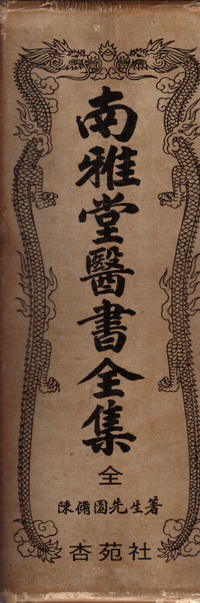 南雅堂醫書全集
全
陳脩園先生著
杏苑社